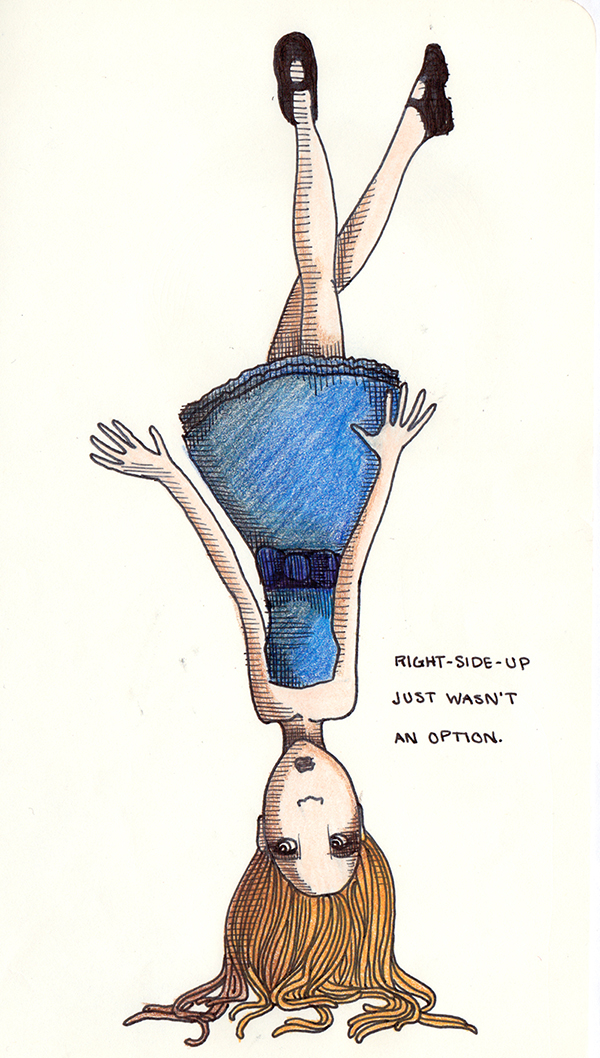 RIGHT-SIDE-UP
JUST WASN'T
AN OPTION.